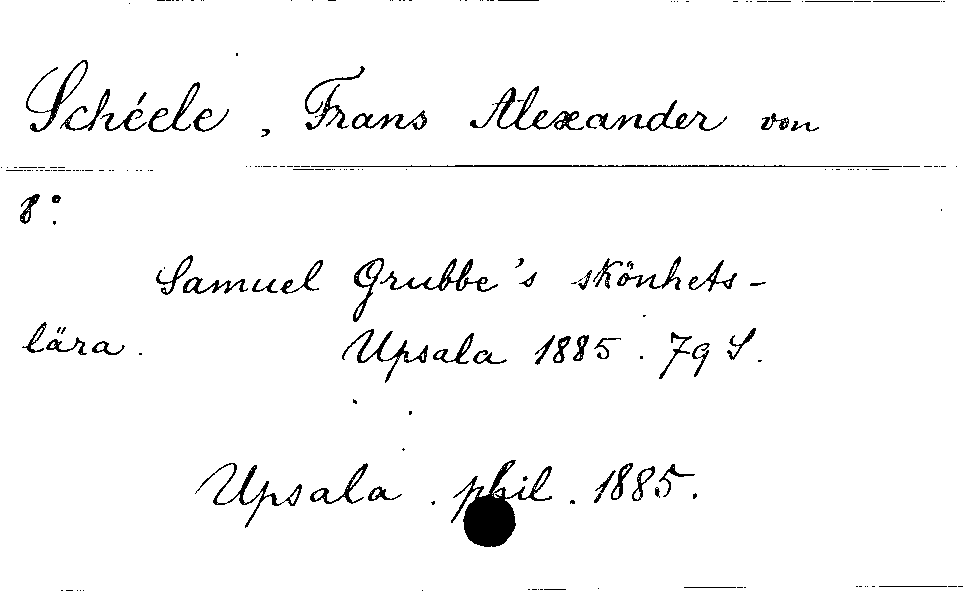 Schéele, Frans Alexander von
8°.
Samuel Grubbe's skönhets-
lära. Upsala 1885. 79 S.
Upsala. phil. 1885.